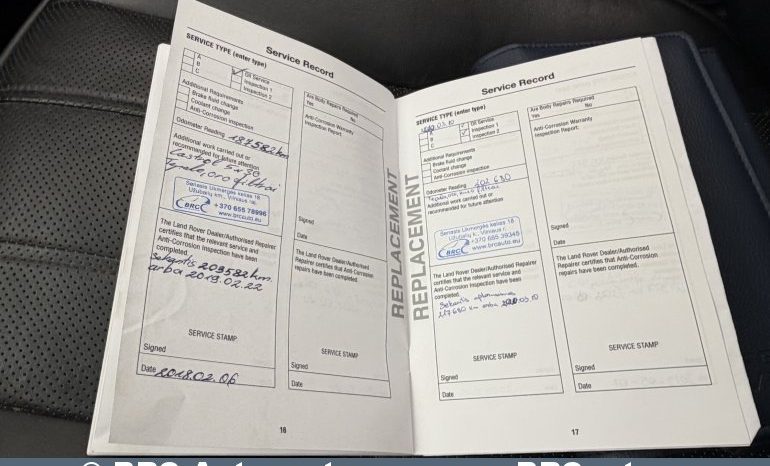 Service Record
SERVICE TYPE (enter type)
A
B
C
Oil Service
Inspection 1
Inspection 2
Additional Requirements
Brake fluid change
Coolant change
Anti-Corrosion inspection
Odometer Reading 187582 km
Additional work carried out or
recommended for future attention
Castrol 5w30
Tepalo, oro filtrai
Senasis Ukmergės kelias 18
Užubalių k., Vilniaus raj.
BRC
+370 655 78996
www.brcauto.eu
The Land Rover Dealer/Authorised Repairer
certifies that the relevant service and
Anti-Corrosion Inspection have been
completed
Sekantis 203582 km.
arba 2019.02.22
SERVICE STAMP
Signed
Date 2018.02.06
Are Body Repairs Required
Yes
No
Anti-Corrosion Warranty
Inspection Report:
Signed
Date
The Land Rover Dealer/Authorised
Repairer certifies that Anti-Corrosion
repairs have been completed.
SERVICE STAMP
Signed
Date
16
REPLACEMENT
REPLACEMENT
Service Record
SERVICE TYPE (enter type)
A
B
C
Oil Service
Inspection 1
Inspection 2
Additional Requirements
Brake fluid change
Coolant change
Anti-Corrosion inspection
Odometer Reading 202 680
Additional work carried out or
recommended for future attention
Senasis Ukmergės kelias 18
Užubalių k., Vilniaus raj.
BRC
+370 655 39348
www.brcauto.eu
The Land Rover Dealer/Authorised
Repairer certifies that the relevant service and
Anti-Corrosion Inspection have been
completed.
Sekantis aptarnavimas
217680 km arba 2020.03.10
SERVICE STAMP
Signed
Date
Are Body Repairs Required
Yes
No
Anti-Corrosion Warranty
Inspection Report:
Signed
Date
The Land Rover Dealer/Authorised
Repairer certifies that Anti-Corrosion
repairs have been completed.
SERVICE STAMP
Signed
Date
17